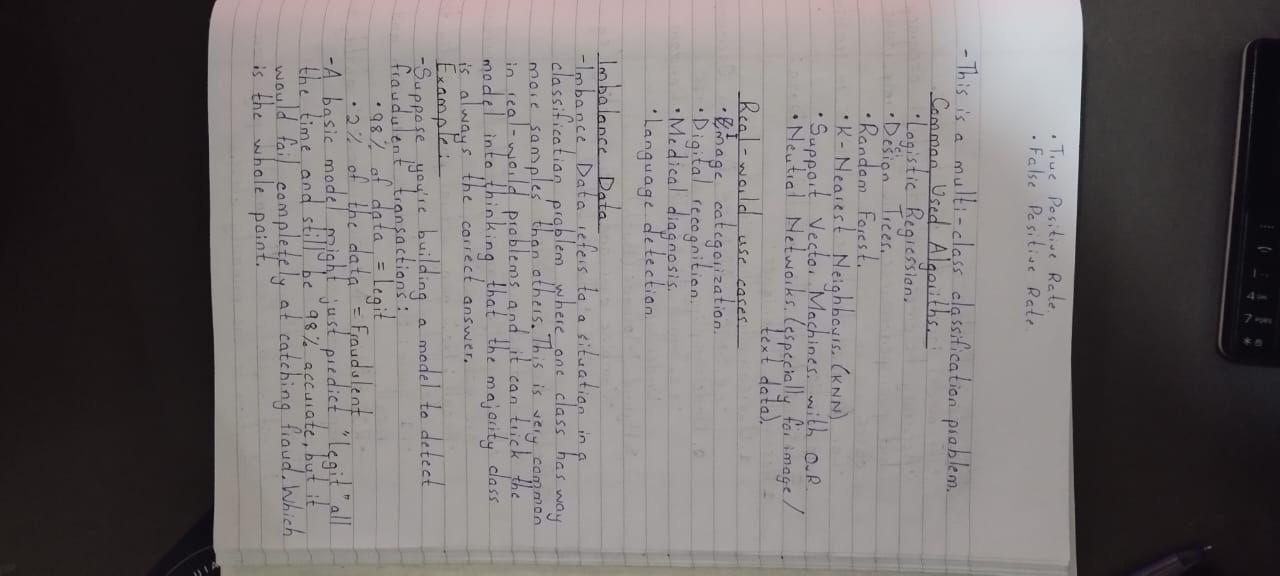 • True Positive Rate.
• False Positive Rate.
- This is a multi-class classification problem.
Common Used Algorithms.
• Logistic Regression.
• Design Trees.
• Random Forest.
• K-Nearest Neighbours. (KNN)
• Support Vector Machines. with OvR
• Neutral Networks. (especially for image/
text data).
Real-world use cases
• Image categorization.
• Digital recognition.
• Medical diagnosis.
• Language detection.
Imbalance Data
- Imbance Data refers to a situation in a
classification problem where one class has way
more samples than others. This is very common
in real-world problems and it can trick the
model into thinking that the majority class
is always the correct answer.
Example:
- Suppose you're building a model to detect
fraudulent transactions:
• 98% of data = legit
• 2% of the data = Fraudulent
- A basic model might just predict "legit" all
the time and still be 98% accurate, but it
would fail completely at catching fraud. Which
is the whole point.